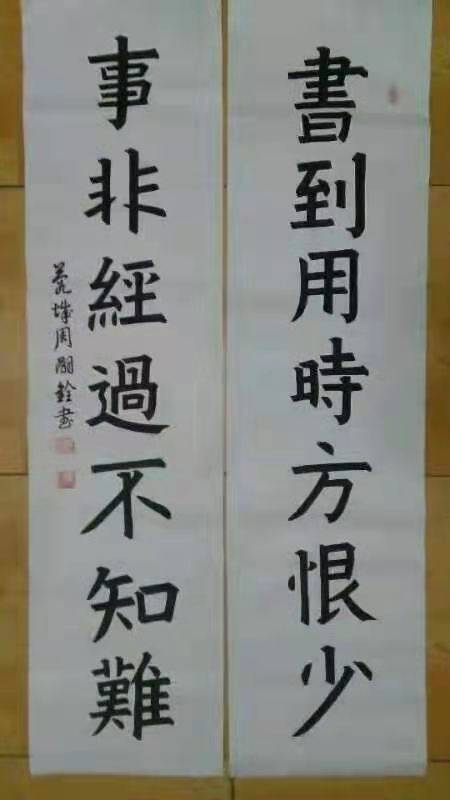 書到用時方恨少
事非經過不知難
周嗣銓書